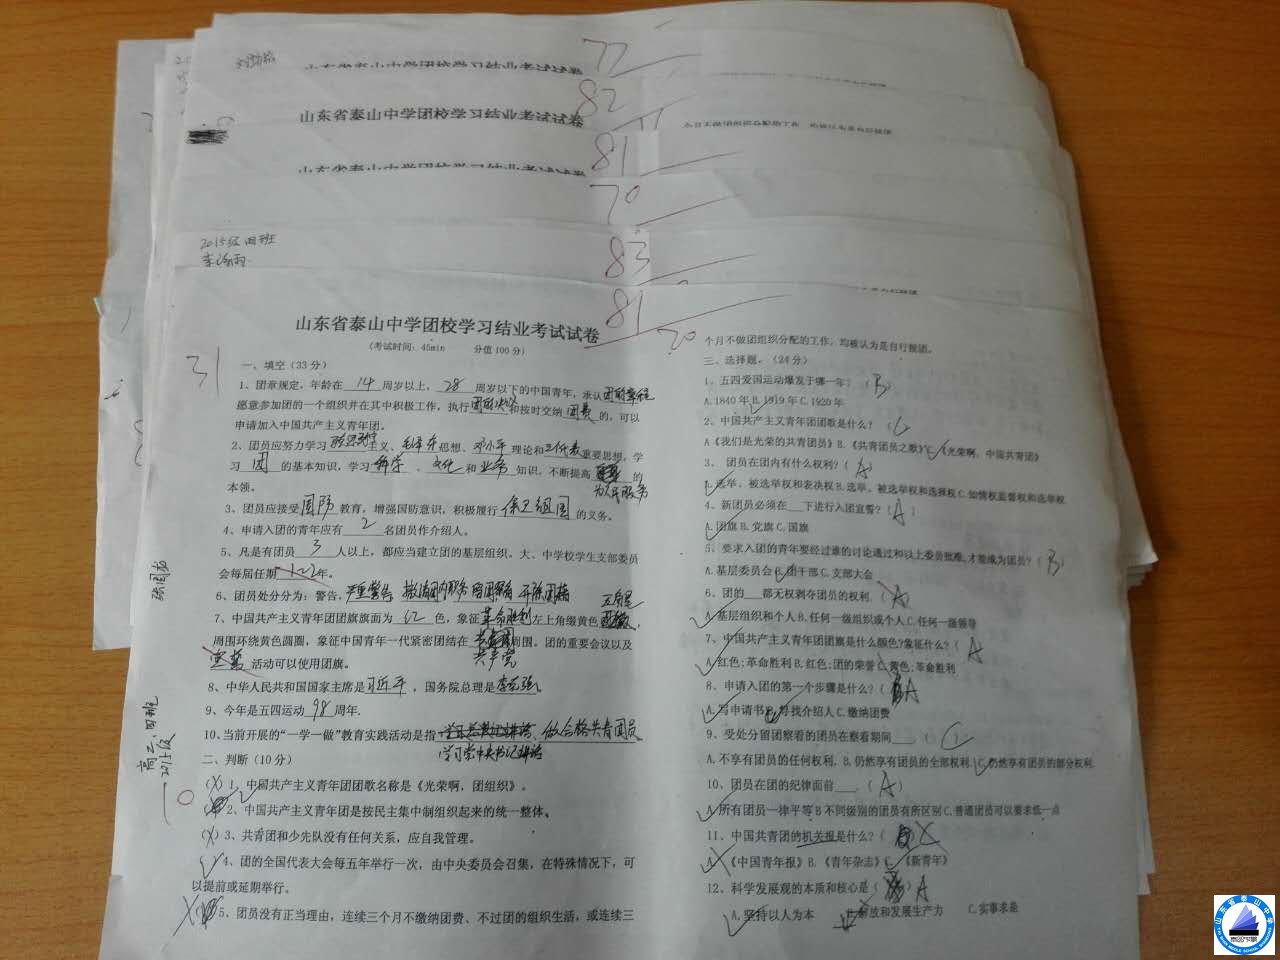 77
82
山东省泰山中学团校学习结业考试试卷
81
70
2015级四班
83
81
山东省泰山中学团校学习结业考试试卷
20
(考试时间：45min 分值100分)
31
一、填空（33分）
1、团章规定，年龄在 14 周岁以上， 28 周岁以下的中国青年，承认团的章程
愿意参加团的一个组织并在其中积极工作，执行团的决议和按时交纳 团费 的，可以
申请加入中国共产主义青年团。
2、团员应努力学习 主义、毛泽东思想、邓小平理论和三个代表重要思想，学
习 团 的基本知识，学习 科学 、 文化 和 业务 知识，不断提高 的
为人民服务
本领。
3、团员应接受 国防 教育，增强国防意识，积极履行 保卫祖国 的义务。
4、申请入团的青年应有 2 名团员作介绍人。
5、凡是有团员 3 人以上，都应当建立团的基层组织。大、中学校学生支部委员
会每届任期 年。
6、团员处分分为：警告，严重警告 撤销团内职务 留团察看 开除团籍
7、中国共产主义青年团团旗旗面为 红 色，象征 革命胜利 左上角缀黄色
周围环绕黄色圆圈，象征中国青年一代紧密团结在 周围。团的重要会议以及
共产党
活动可以使用团旗。
8、中华人民共和国国家主席是习近平，国务院总理是李克强。
9、今年是五四运动 98 周年.
10、当前开展的“一学一做”教育实践活动是指 、做合格共青团员
学习党中央书记讲话
二、判断（10分）
(X) 1、中国共产主义青年团团歌名称是《光荣啊，团组织》。
2、中国共产主义青年团是按民主集中制组织起来的统一整体。
(X) 3、共青团和少先队没有任何关系，应自我管理。
4、团的全国代表大会每五年举行一次，由中央委员会召集，在特殊情况下，可
以提前或延期举行。
5、团员没有正当理由，连续三个月不缴纳团费、不过团的组织生活，或连续三
高二、四班
2015级
10
个月不做团组织分配的工作，均被认为是自行脱团。
三、选择题。（24分）
1、五四爱国运动爆发于哪一年？（B）
A.1840年B.1919年C.1920年
2、中国共产主义青年团团歌是什么？（C
A《我们是光荣的共青团员》B.《共青团员之歌》C.《光荣啊，中国共青团》
3、团员在团内有什么权利？（A）
A.选举、被选举权和表决权B.选举、被选举权和选择权C.知情权监督权和选举权
4、新团员必须在___下进行入团宣誓？（A）
A.团旗B.党旗C.国旗
5、要求入团的青年要经过谁的讨论通过和以上委员批准,才能成为团员？（B）
A.基层委员会B.团干部C.支部大会
6、团的___都无权剥夺团员的权利.（A）
A.基层组织和个人B.任何一级组织或个人C.任何一级领导
7、中国共产主义青年团团旗是什么颜色?象征什么？（A
A.红色;革命胜利B.红色;团的荣誉C.黄色;革命胜利
8、申请入团的第一个步骤是什么？（A
A.写申请书B.寻找介绍人C.缴纳团费
9、受处分留团察看的团员在察看期间___（C）
A.不享有团员的任何权利. B.仍然享有团员的全部权利.C.仍然享有团员的部分权利.
10、团员在团的纪律面前___（A）
A.所有团员一律平等B不同级别的团员有所区别C.普通团员可以要求低一点
11、中国共青团的机关报是什么？（
A.《中国青年报》B.《青年杂志》C.《新青年》
12、科学发展观的本质和核心是（ ）A
A.坚持以人为本 B.解放和发展生产力 C.实事求是
山东省泰山中学